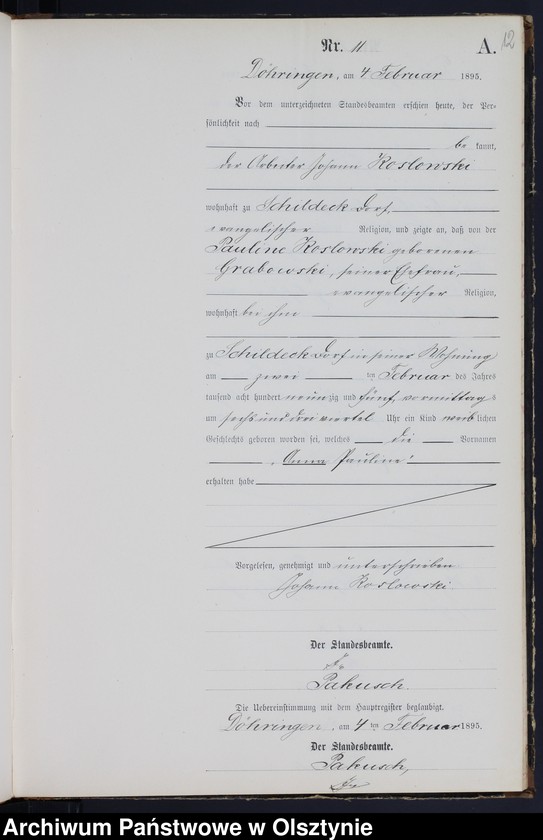 12
Nr. 11
A.
Döhringen, am 4 Februar 1895.
Vor dem unterzeichneten Standesbeamten erschien heute, der Per-
sönlichkeit nach
be kannt,
der Arbeiter Johann Koslowski
wohnhaft zu Schildeck Dorf,
evangelischer Religion, und zeigte an, daß von der
Pauline Koslowski geborenen
Grabowski, seiner Ehefrau,
evangelischer Religion,
wohnhaft bei ihm
zu Schildeck Dorf in seiner Wohnung
am zwei ten Februar des Jahres
tausend acht hundert neunzig und fünf vormittags
um sechs und drei viertel Uhr ein Kind weiblichen
Geschlechts geboren worden sei, welches die Vornamen
"Anna Pauline"
erhalten habe
Vorgelesen, genehmigt und unterschrieben
Johann Koslowski
Der Standesbeamte.
Pakusch.
Die Uebereinstimmung mit dem Hauptregister beglaubigt.
Döhringen, am 4 ten Februar 1895.
Der Standesbeamte.
Pakusch,
Archiwum Państwowe w Olsztynie